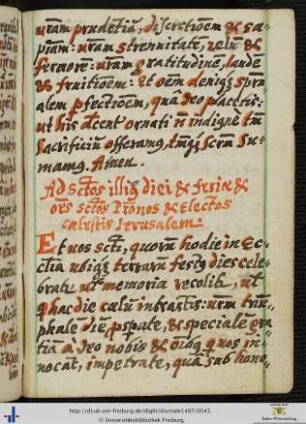 uram prudētiā, discretioēm & sa-
piam: uram strennuitatē, zelū &
feruorē: uram gratitudinē, laudē
& fruitionē: Et oēm deniq; spūa
alem pfectioēm, quā Deo placētis:
ut his ... ornati n̄ indignē tm̄
Sacrificiū offeram9, ... Scrm̄ Su-
mam9. Amen.
Ad Sctos illi9 diei & feriæ &
oēs sctos Pr̄onos & Electos
cælestis Ierusalem.
Et uos scti, quorū hodie in Ec-
clīa ubiq; terrarū fest9 dies cele-
bratr̄ ut memoria recolitr̄, ut
q hac die cælū intrastis: urm̄ triū-
phalē diē pspate, & specialē grā-
tiā a Deo nobis & oīb9 quos in-
uocat, impetrate, quā sub hono-
http://dl.ub.uni-freiburg.de/diglit/diurnale1487/0543
© Universitätsbibliothek Freiburg
Baden-Württemberg